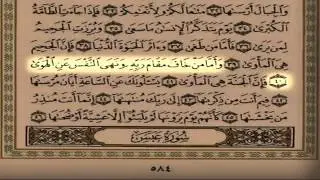 وَالْجِبَالَ أَرْسَىٰهَا ٣٢ مَتَاعًا لَّكُمْ وَلِأَنْعَامِكُمْ ٣٣ فَإِذَا جَاءَتِ الطَّامَّةُ
الْكُبْرَىٰ ٣٤ يَوْمَ يَتَذَكَّرُ الْإِنسَانُ مَا سَعَىٰ ٣٥ وَبُرِّزَتِ الْجَحِيمُ
لِمَن يَرَىٰ ٣٦ فَأَمَّا مَن طَغَىٰ ٣٧ وَءَاثَرَ الْحَيَوٰةَ الدُّنْيَا ٣٨ فَإِنَّ الْجَحِيمَ
هِيَ الْمَأْوَىٰ ٣٩ وَأَمَّا مَنْ خَافَ مَقَامَ رَبِّهِ وَنَهَى النَّفْسَ عَنِ الْهَوَىٰ
٤٠ فَإِنَّ الْجَنَّةَ هِيَ الْمَأْوَىٰ ٤١ يَسْـَٔلُونَكَ عَنِ السَّاعَةِ أَيَّانَ مُرْسَىٰهَا
٤٢ فِيمَ أَنتَ مِن ذِكْرَىٰهَا ٤٣ إِلَىٰ رَبِّكَ مُنتَهَىٰهَا ٤٤ إِنَّمَا أَنتَ مُنذِرُ
مَن يَخْشَىٰهَا ٤٥ كَأَنَّهُمْ يَوْمَ يَرَوْنَهَا لَمْ يَلْبَثُوا إِلَّا عَشِيَّةً أَوْ ضُحَىٰهَا ٤٦
سُورَةُ عَبَسَ
٥٨٤